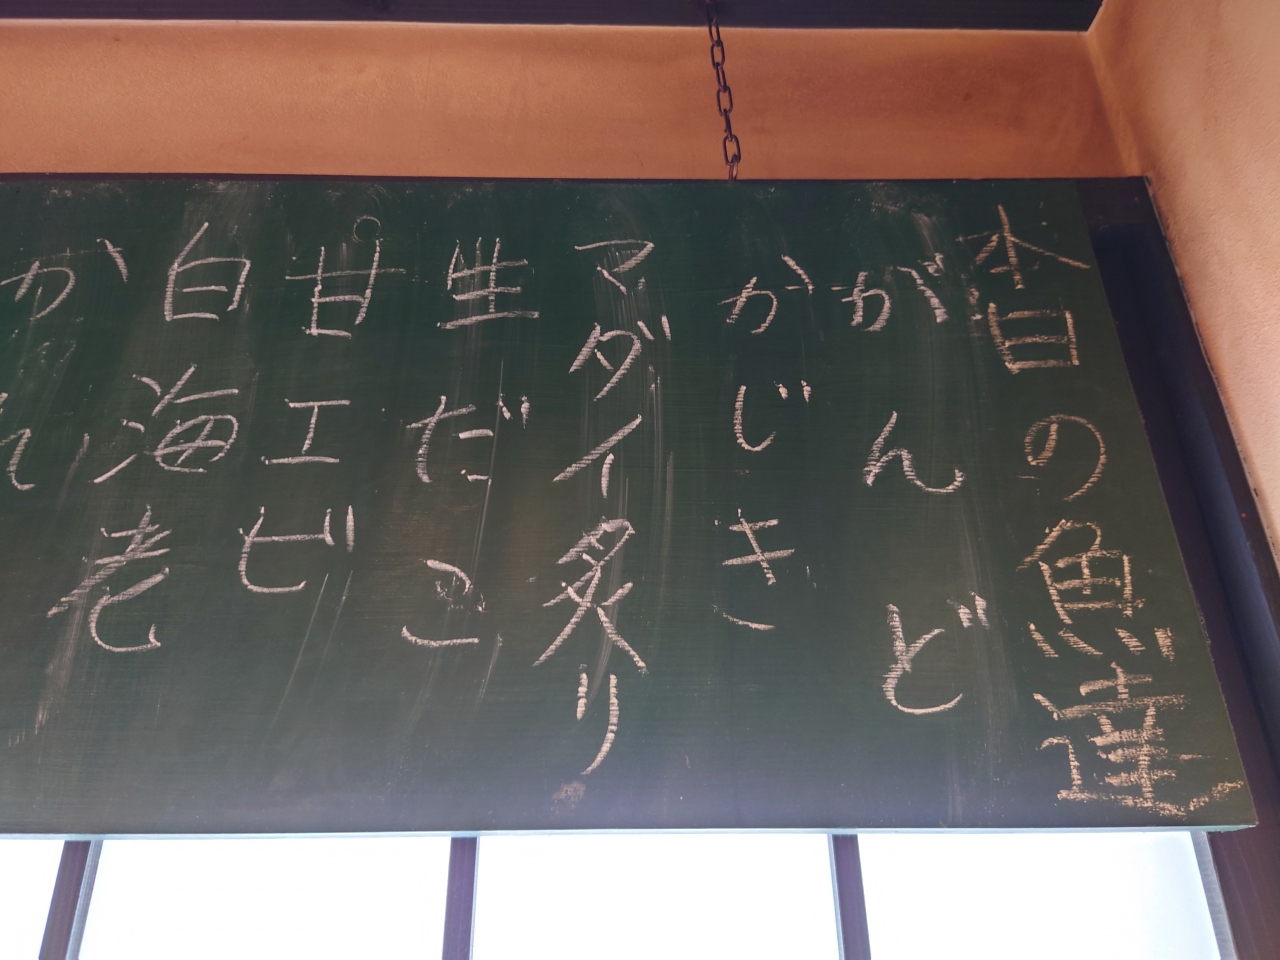 本日の魚達
ががんど
かじき
マダイ炙り
生だこ
甘エビ
白海老